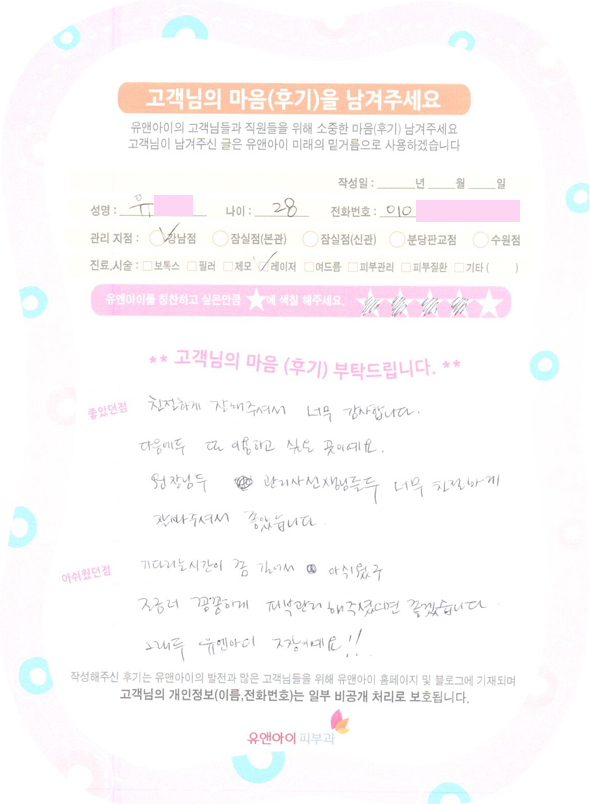 고객님의 마음(후기)을 남겨주세요
유앤아이의 고객님들과 직원들을 위해 소중한 마음(후기) 남겨주세요
고객님이 남겨주신 글은 유앤아이 미래의 밑거름으로 사용하겠습니다
작성일 : ______년 ____월 ____일
성명 : 유 나이 : 28 전화번호 : 010
관리 지점 : 강남점 잠실점(본관) 잠실점(신관) 분당판교점 수원점
진료,시술 : 보톡스 필러 제모 레이저 여드름 피부관리 피부질환 기타 ( )
유앤아이를 칭찬하고 싶은만큼 ★에 색칠 해주세요.
** 고객님의 마음 (후기) 부탁드립니다. **
좋았던점 친절하게 잘해주셔서 너무 감사합니다.
다음에두 또 이용하고 싶은 곳이예요.
원장님두 관리사선생님들두 너무 친절하게
잘봐주셔서 좋았습니다.
아쉬웠던점 기다리는시간이 쫌 길어서 아쉬웠구
조금더 꼼꼼하게 피부관리 해주셨으면 좋겠습니다.
그래두 유앤아이 짱이예요!!
작성해주신 후기는 유앤아이의 발전과 많은 고객님들을 위해 유앤아이 홈페이지 및 블로그에 기재되며
고객님의 개인정보(이름,전화번호)는 일부 비공개 처리로 보호됩니다.
유앤아이 피부과